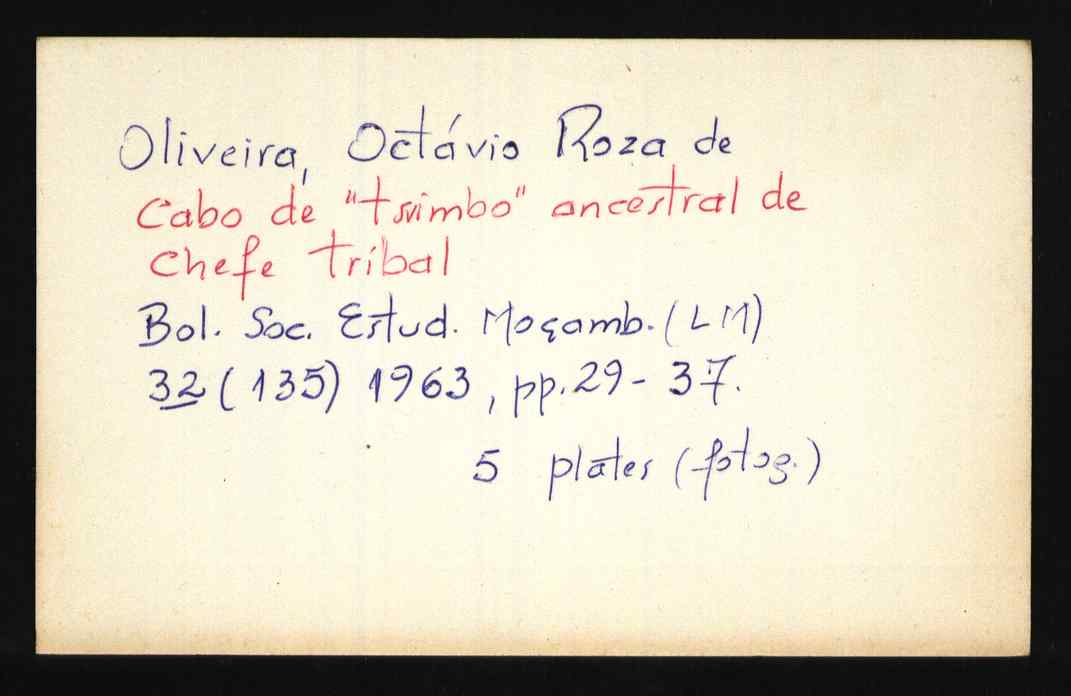 Oliveira, Octávio Roza de
Cabo de "tsvimbo" ancestral de
Chefe tribal
Bol. Soc. Estud. Moçamb. (LM)
32 (135) 1963, pp. 29-37.
5 plates (fotog.)